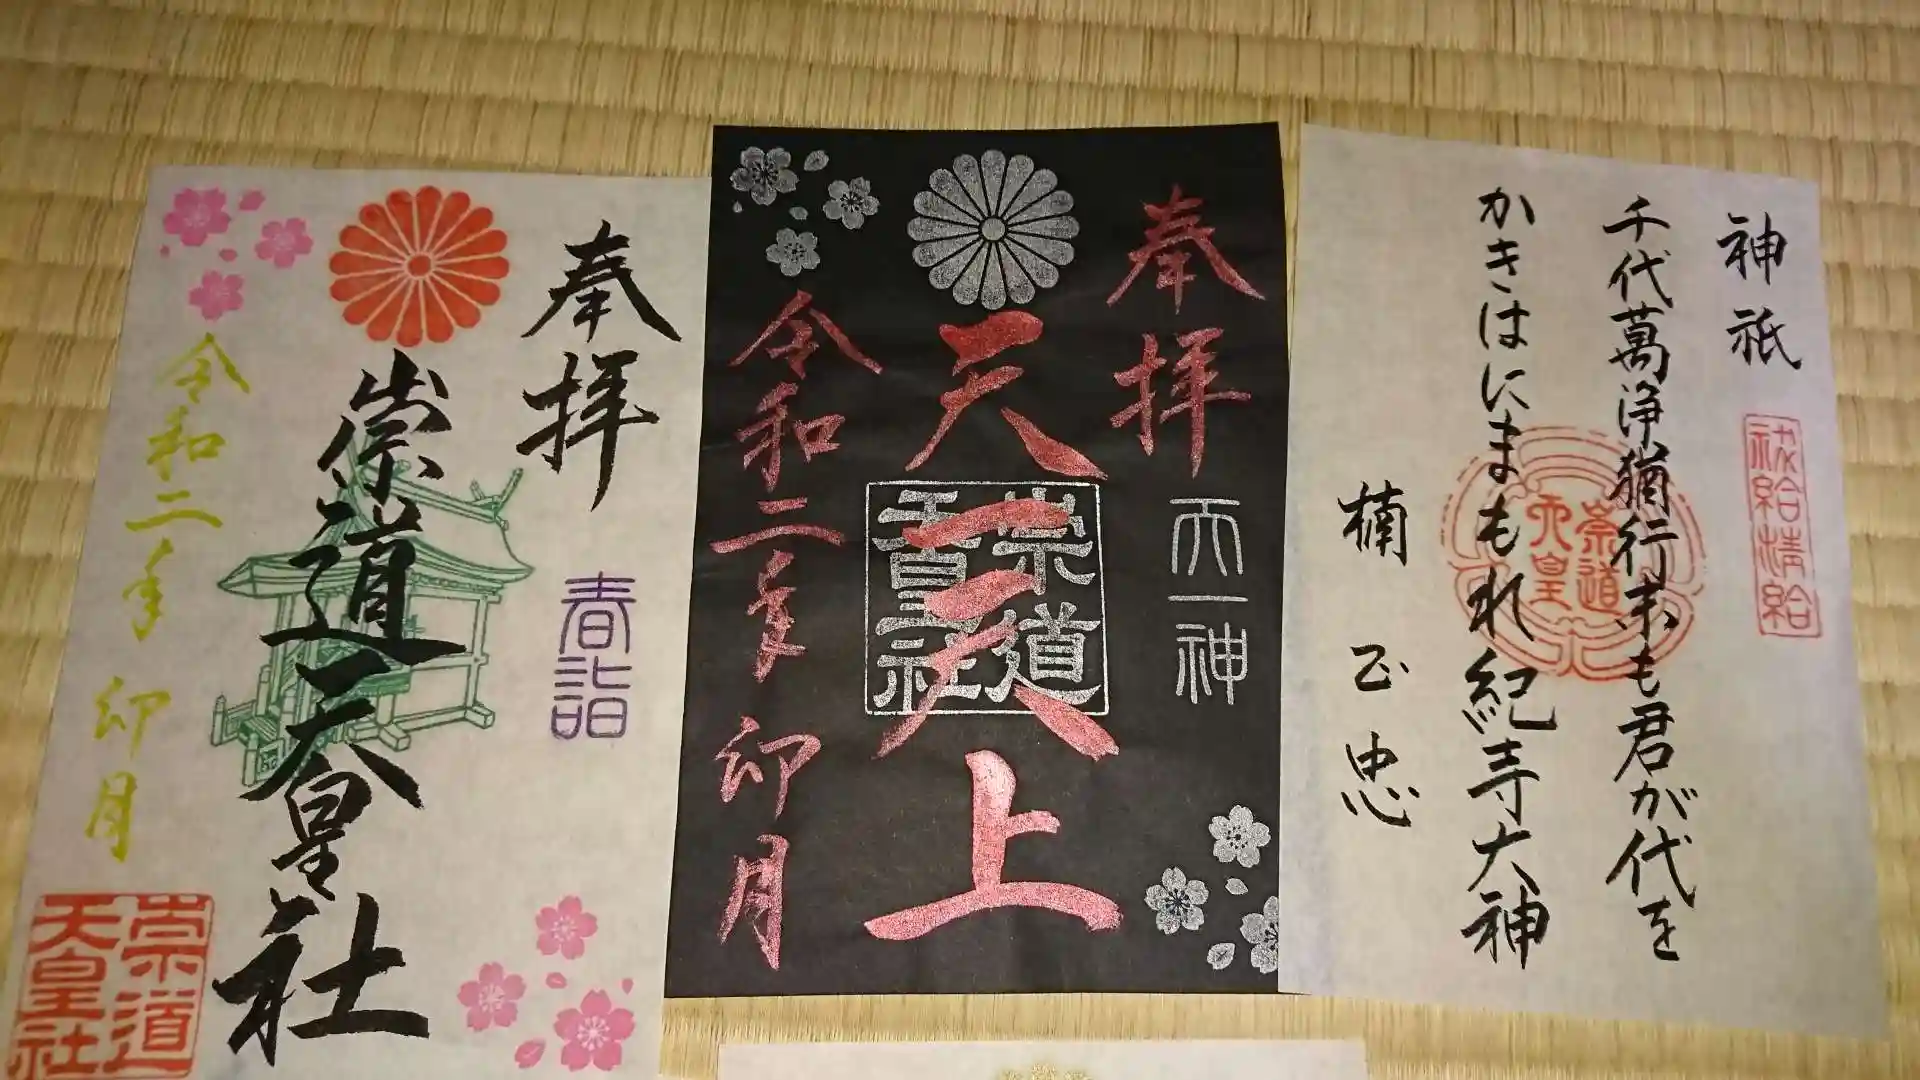 奉拝
春詣
崇道天皇社
令和二年 卯月
崇道
天皇社
奉拝
天一神
天一天上
崇道
天皇社
令和二年 卯月
神祇
祓給清給
千代萬浄猶行末も君が代を
崇道
天皇
かきはにまもれ紀寺大神
楠正忠